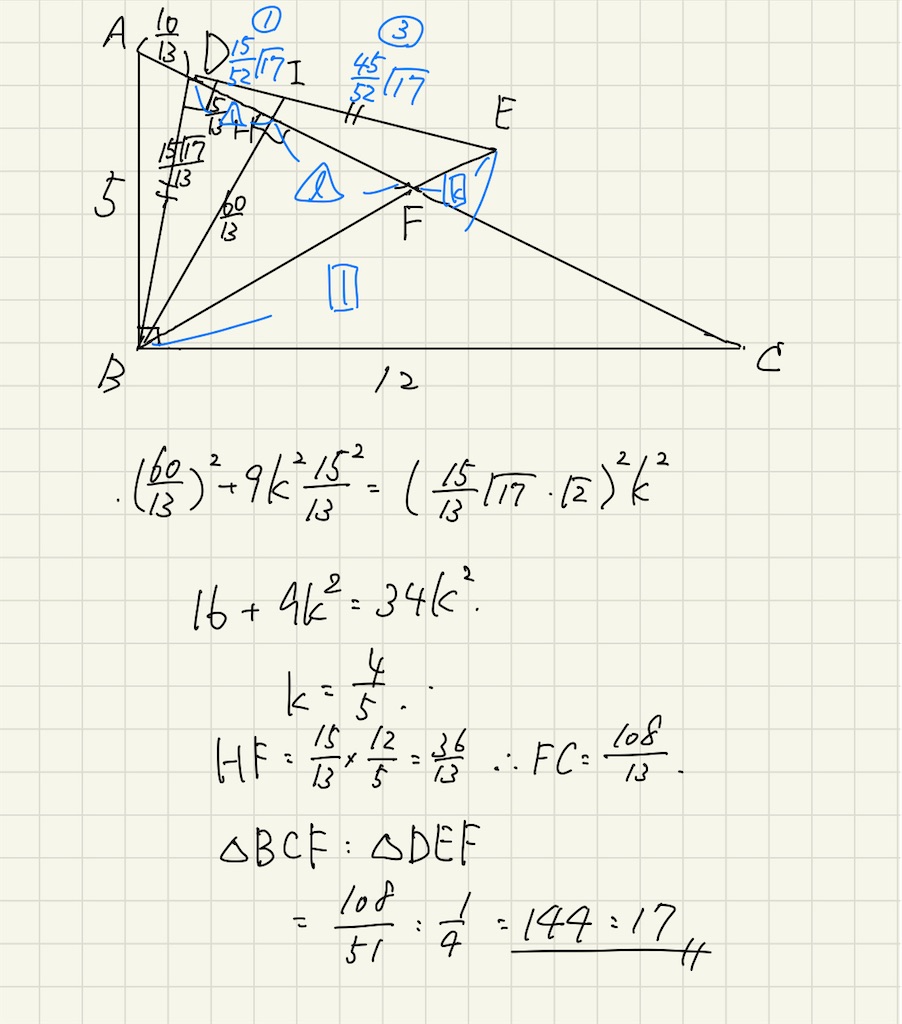 ①
③
A
10/13
D
15/52 √17
I
45/52 √17
E
15/13
H
15√17/13
5
60/13
F
k
1
B
12
C
(60/13)² + 9k² 15²/13 = (15/13 √17 · √2)² k²
16 + 9k² = 34k².
k = 4/5 .
HF = 15/13 × 12/5 = 36/13 ∴ FC = 108/13 .
△BCF : △DEF
= 108/51 : 1/4 = 144 : 17